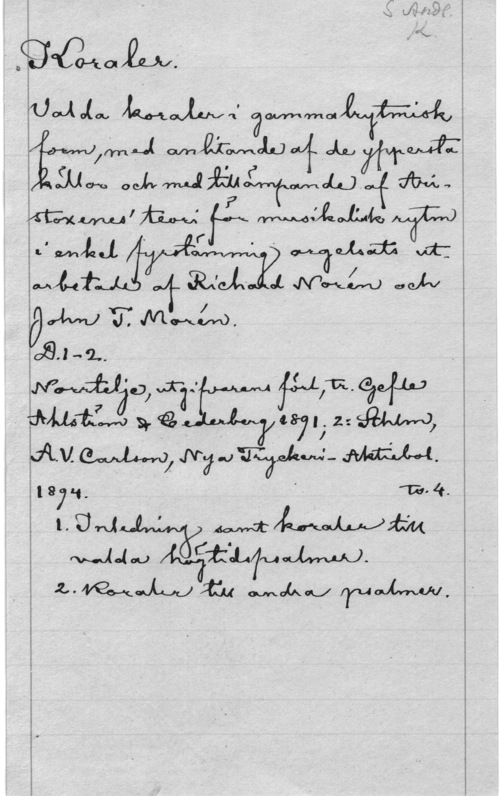 S. Andl.
K.
Koraler.
Valda koraler i gammalrytmisk
form, med anlitande af de yppersta
källor och med tillämpande af Ari-
stoxenes' teori för musikalisk rytm
i enkel fyrstämmig orgelsats ut-
arbetade af Richard Norén och
John T. Morén.
D.1-2.
Norrtelje, utgifvarens förl., tr. Gefle
Ahlström & Cederberg 1891; 2: Sthlm,
A.V. Carlson, Nya Tryckeri-Aktiebol.
1894. Tv. 4.
1. Inledning samt koraler till
valda högtidspsalmer.
2. Koraler till andra psalmer.